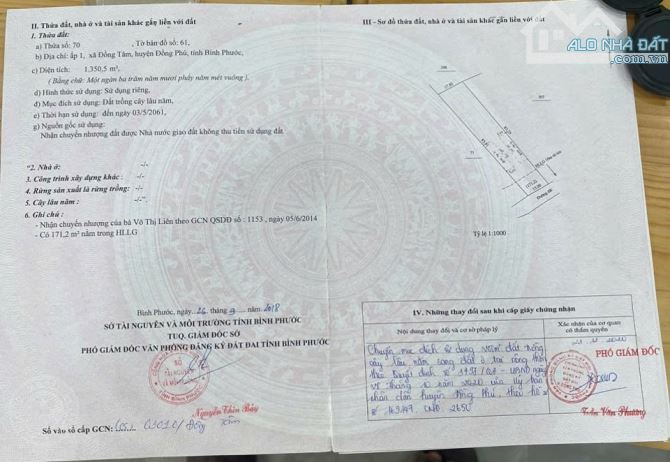 II. Thửa đất, nhà ở và tài sản khác gắn liền với đất
1. Thửa đất:
a) Thửa số: 70 , Tờ bản đồ số: 61,
b) Địa chỉ: ấp 1, xã Đồng Tâm, huyện Đồng Phú, tỉnh Bình Phước,
c) Diện tích: 1.350,5 m²,
( Bằng chữ: Một ngàn ba trăm năm mươi phẩy năm mét vuông ),
d) Hình thức sử dụng: Sử dụng riêng,
đ) Mục đích sử dụng: Đất trồng cây lâu năm,
e) Thời hạn sử dụng: đến ngày 03/5/2061,
g) Nguồn gốc sử dụng:
Nhận chuyển nhượng đất được Nhà nước giao đất không thu tiền sử dụng đất.
2. Nhà ở: -/-
3. Công trình xây dựng khác: -/-
4. Rừng sản xuất là rừng trồng: -/-
5. Cây lâu năm : -/-
6. Ghi chú :
- Nhận chuyển nhượng của bà Võ Thị Liên theo GCN QSDĐ số : 1153 , ngày 05/6/2014
- Có 171,2 m² nằm trong HLLG
Bình Phước, ngày 26 tháng 9 năm 2018
SỞ TÀI NGUYÊN VÀ MÔI TRƯỜNG TỈNH BÌNH PHƯỚC
TUQ. GIÁM ĐỐC SỞ
PHÓ GIÁM ĐỐC VĂN PHÒNG ĐĂNG KÝ ĐẤT ĐAI TỈNH BÌNH PHƯỚC
Số vào sổ cấp GCN:
III - Sơ đồ thửa đất, nhà ở và tài sản khác gắn liền với đất
ALO NHÀ ĐẤT
.com.vn
71
Đường đất
Tỷ lệ 1:1000
IV. Những thay đổi sau khi cấp giấy chứng nhận
Nội dung thay đổi và cơ sở pháp lý
Xác nhận của cơ quan có thẩm quyền
Chuyển mục đích sử dụng đất trồng
cây lâu năm sang đất ở tại nông thôn
theo Quyết định số
nhân dân huyện Đồng Phú, theo hồ sơ
PHÓ GIÁM ĐỐC
Trần Văn Phương
ALO NHÀ ĐẤT
.com.vn